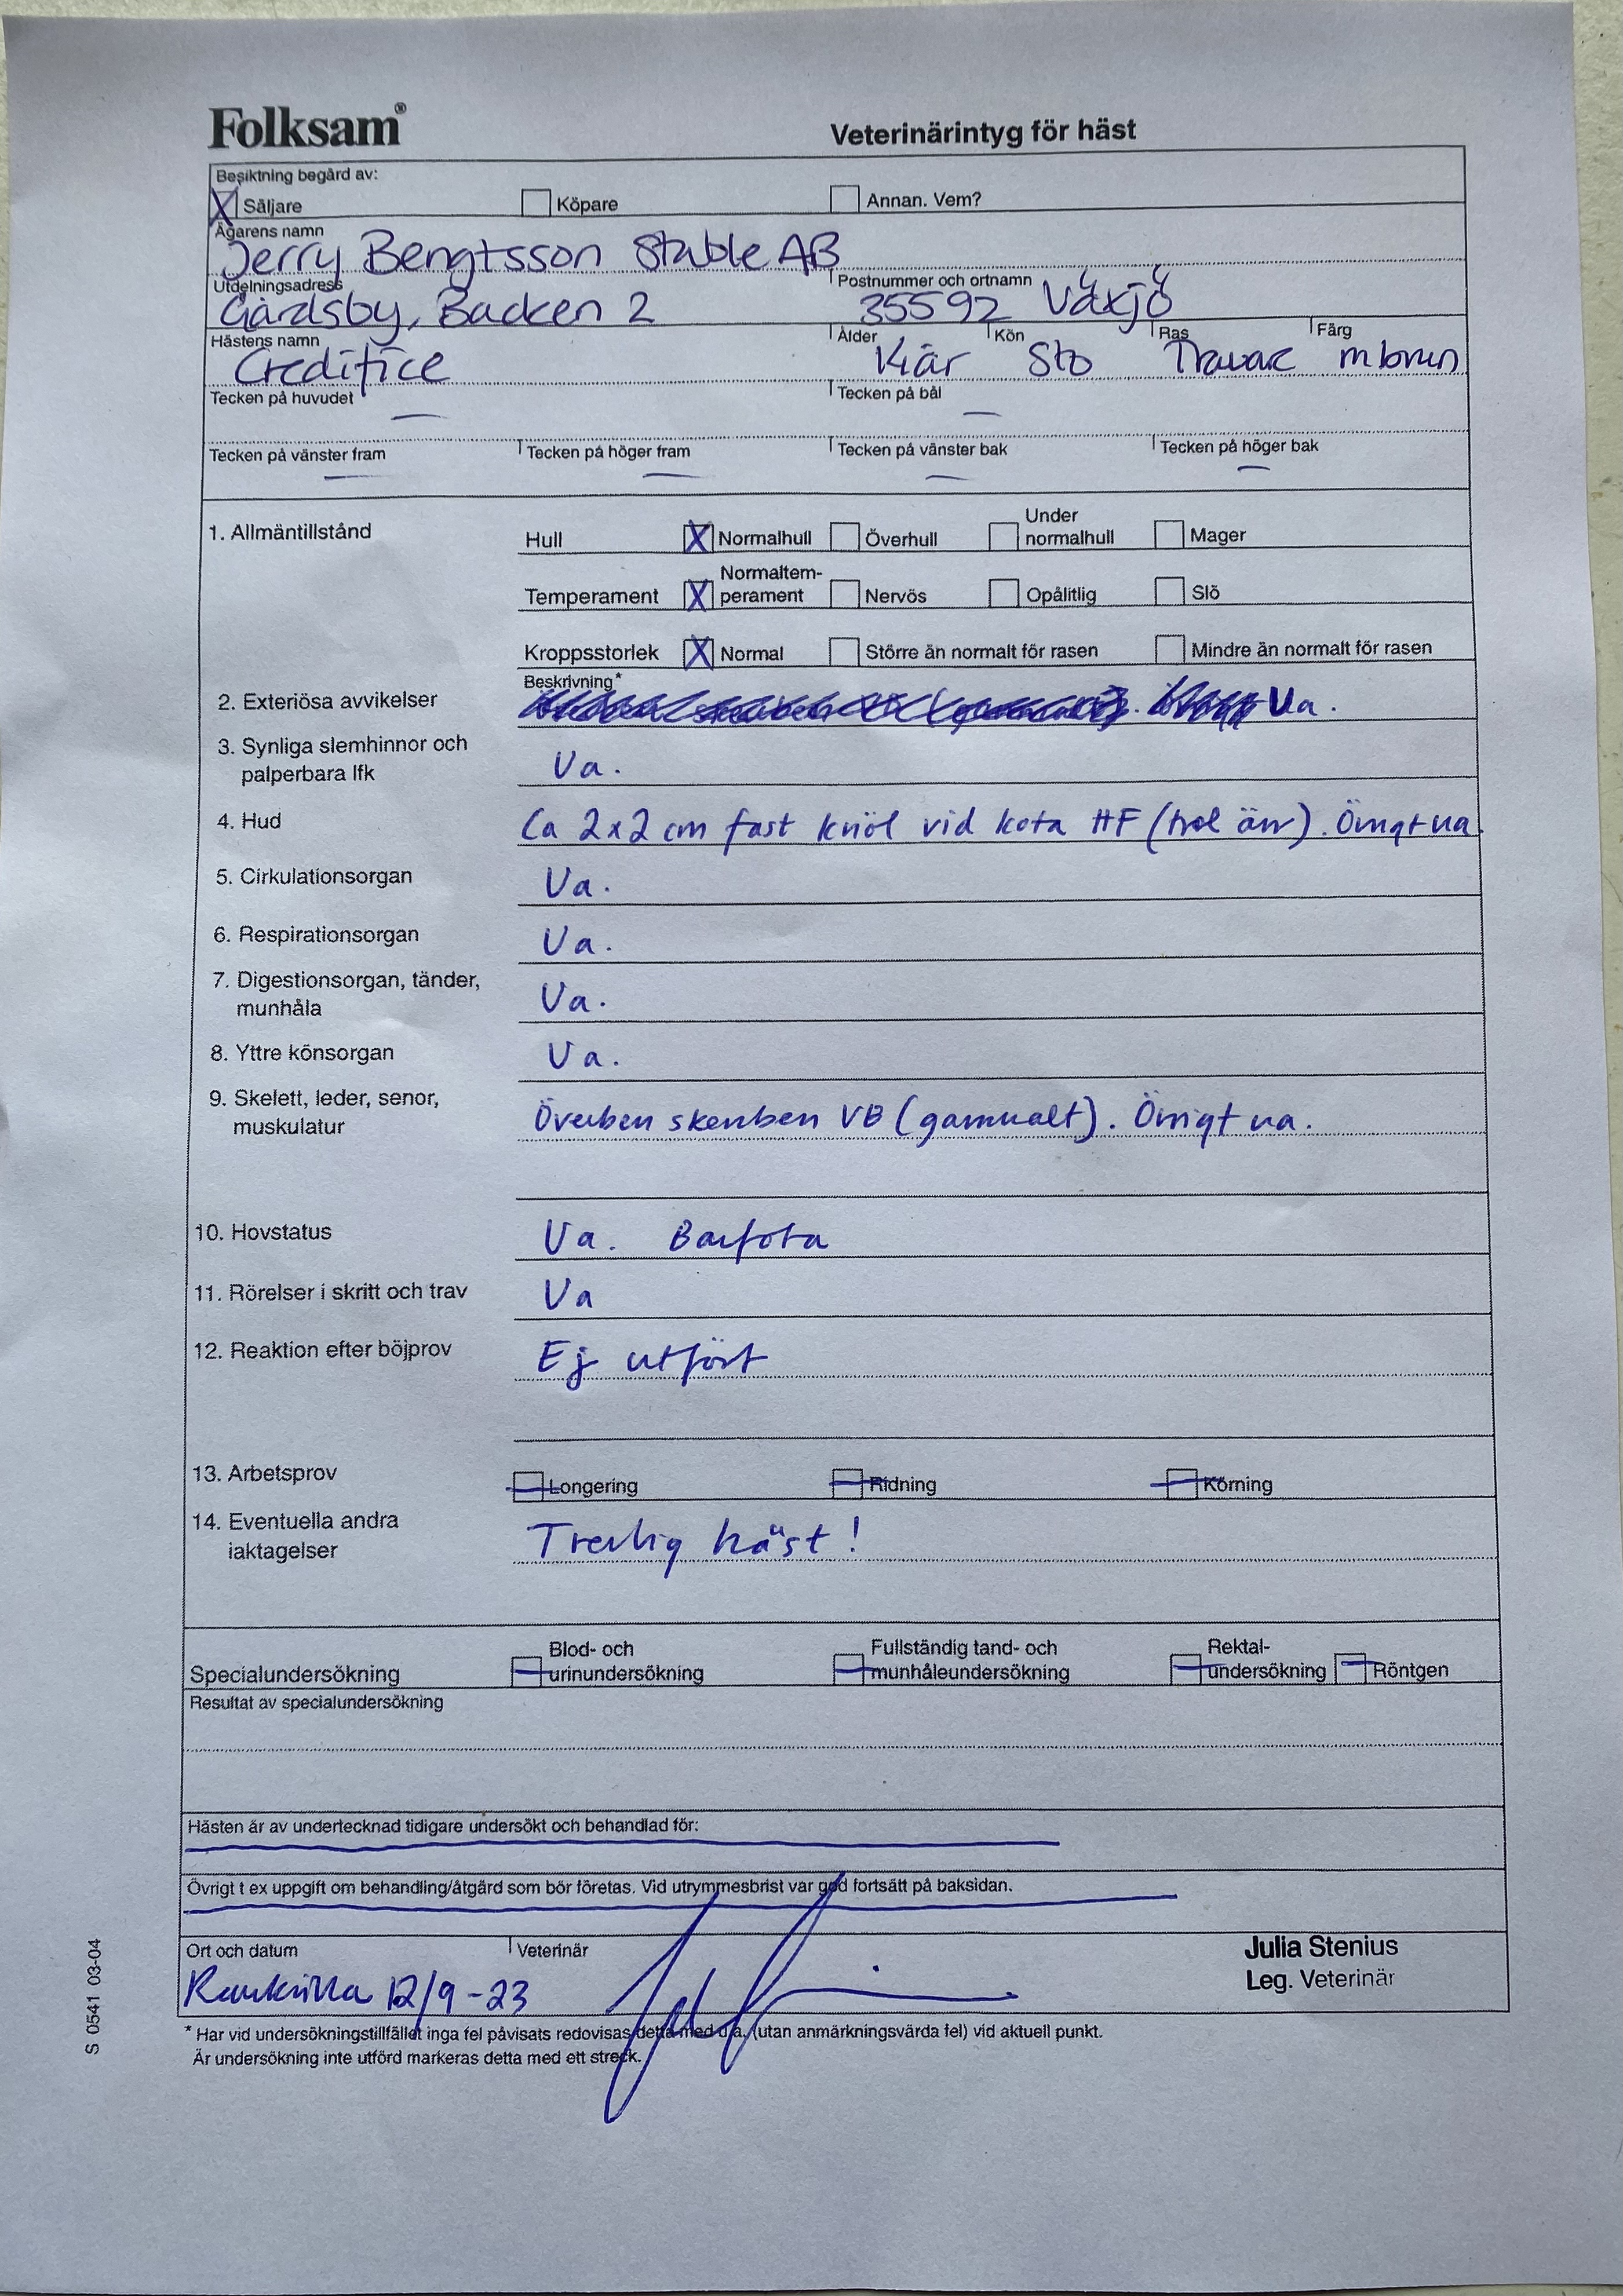 Folksam®
Veterinärintyg för häst
Besiktning begärd av:
X Säljare Köpare Annan. Vem?
Ägarens namn
Jerry Bengtsson Stable AB
Utdelningsadress Postnummer och ortnamn
Gårdsby, Backen 2 35592 Växjö
Hästens namn Ålder Kön Ras Färg
Credifice Sto Travare mbrun
Tecken på huvudet Tecken på bål
—
—
Tecken på vänster fram Tecken på höger fram Tecken på vänster bak Tecken på höger bak
— — — —
1. Allmäntillstånd
Hull X Normalhull Överhull Under normalhull Mager
Temperament X Normaltem-
perament Nervös Opålitlig Slö
Kroppsstorlek X Normal Större än normalt för rasen Mindre än normalt för rasen
Beskrivning*
2. Exteriösa avvikelser Ua.
3. Synliga slemhinnor och
palperbara lfk Ua.
4. Hud Ca 2x2 cm fast knöl vid kota HF (trol ärr). Övrigt ua.
5. Cirkulationsorgan Ua.
6. Respirationsorgan Ua.
7. Digestionsorgan, tänder,
munhåla Ua.
8. Yttre könsorgan Ua.
9. Skelett, leder, senor,
muskulatur Överben skenben VB (gammalt). Övrigt ua.
10. Hovstatus Ua. Barfota
11. Rörelser i skritt och trav Ua
12. Reaktion efter böjprov Ej utfört
13. Arbetsprov Longering Ridning Körning
14. Eventuella andra
iaktagelser Trevlig häst!
Specialundersökning Blod- och
urinundersökning Fullständig tand- och
munhåleundersökning Rektal-
undersökning Röntgen
Resultat av specialundersökning
Hästen är av undertecknad tidigare undersökt och behandlad för:
Övrigt t ex uppgift om behandling/åtgärd som bör företas. Vid utrymmesbrist var god fortsätt på baksidan.
Ort och datum Veterinär
12/9-23
Julia Stenius
Leg. Veterinär
* Har vid undersökningstillfället inga fel påvisats redovisas detta med u.a. (utan anmärkningsvärda fel) vid aktuell punkt.
Är undersökning inte utförd markeras detta med ett streck.
S 0541 03-04